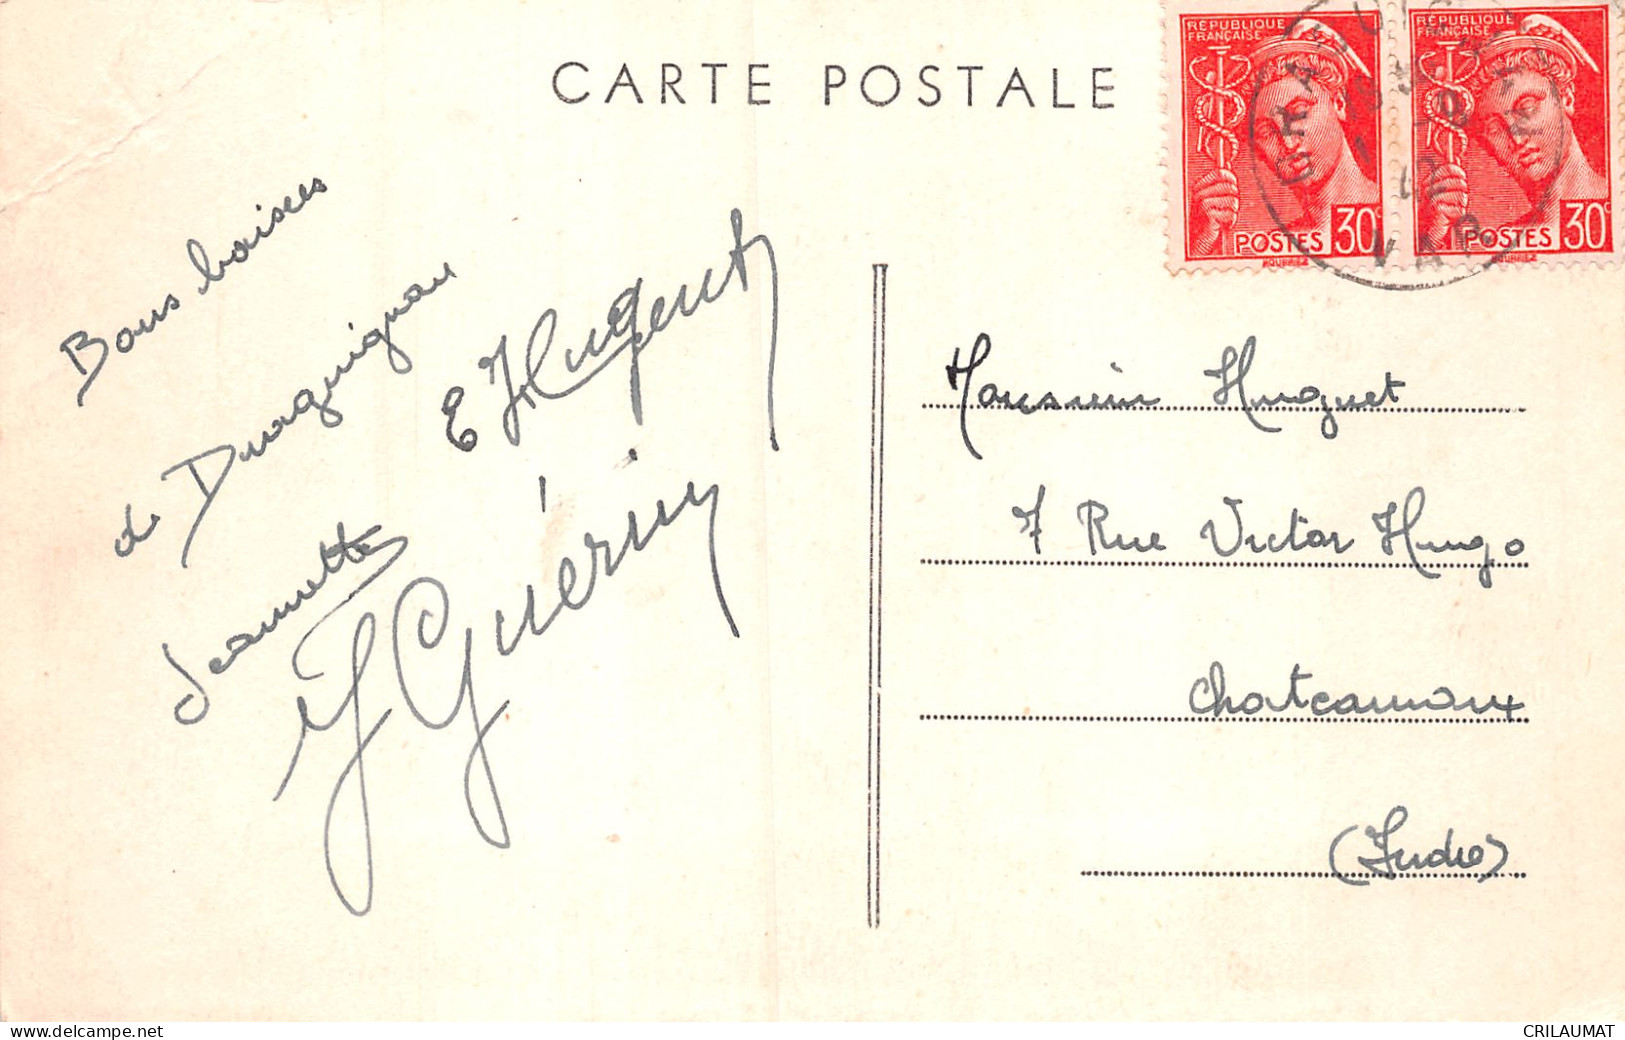 CARTE POSTALE
RÉPUBLIQUE
FRANÇAISE
POSTES 30c
RÉPUBLIQUE
FRANÇAISE
POSTES 30c
VAR
Bons baisers
de Draguignan
E Huguet
Jeannette
J Guérin
Monsieur Huguet
7 Rue Victor Hugo
Chateauroux
(Indre)
CRILAUMAT
www.delcampe.net